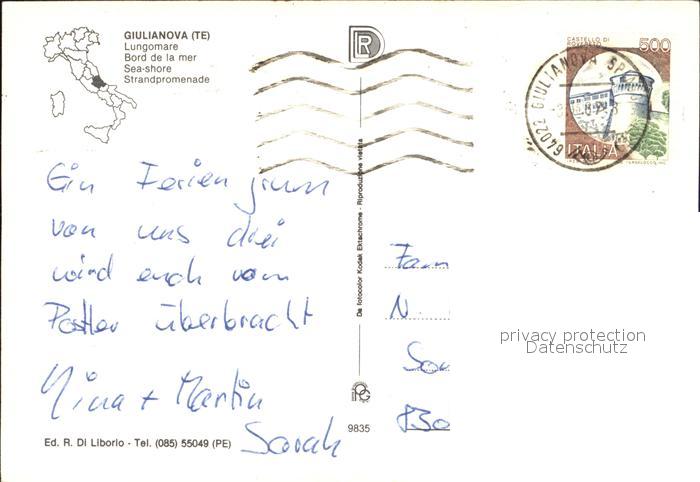 GIULIANOVA (TE)
Lungomare
Bord de la mer
Sea-shore
Strandpromenade
DR
CASTELLO DI
500
ITALIA
64022 GIULIANOVA SP
Ein Ferien gruss
von uns drei
wird euch vom
Pöstler überbracht
Nina + Martin
Sarah
Ed. R. Di Liborio - Tel. (085) 55049 (PE)
Da fotocolor Kodak Ektachrome - Riproduzione vietata
9835
Fam
N.
privacy protection
Datenschutz